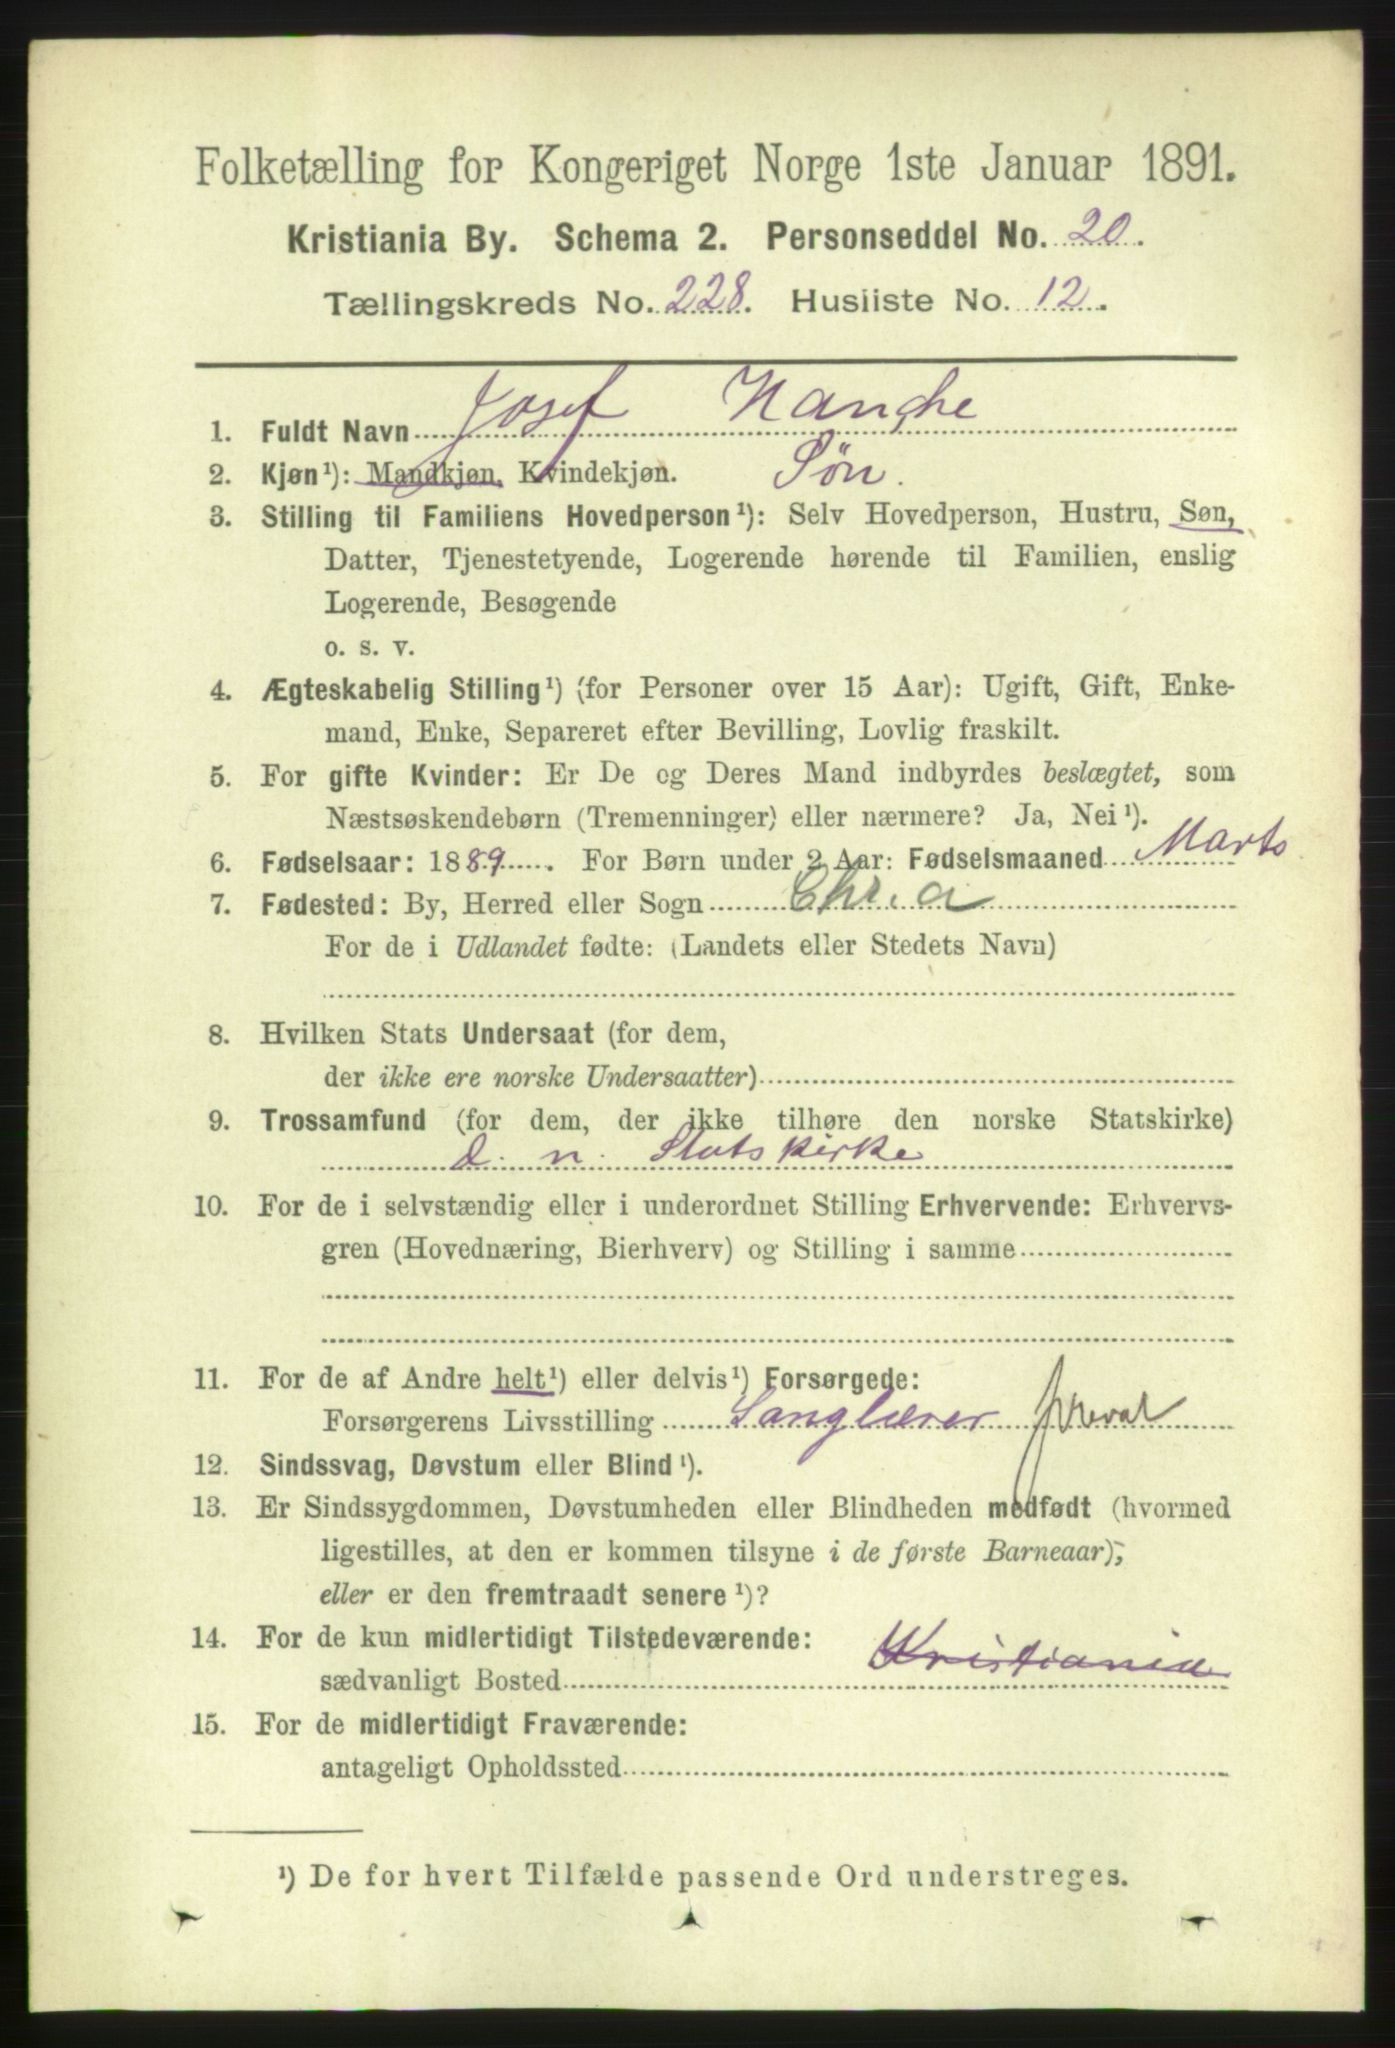 Folketælling for Kongeriget Norge 1ste Januar 1891.
Kristiania By. Schema 2. Personseddel No. 20.
Tællingskreds No. 228. Husliste No. 12.
1. Fuldt Navn Josef Hanche
2. Kjøn¹): Mandkjøn, Kvindekjøn. Søn.
3. Stilling til Familiens Hovedperson¹): Selv Hovedperson, Hustru, Søn,
Datter, Tjenestetyende, Logerende hørende til Familien, enslig
Logerende, Besøgende
o. s. v.
4. Ægteskabelig Stilling¹) (for Personer over 15 Aar): Ugift, Gift, Enke-
mand, Enke, Separeret efter Bevilling, Lovlig fraskilt.
5. For gifte Kvinder: Er De og Deres Mand indbyrdes beslægtet, som
Næstsøskendebørn (Tremenninger) eller nærmere? Ja, Nei¹).
6. Fødselsaar: 1889. For Børn under 2 Aar: Fødselsmaaned Marts
7. Fødested: By, Herred eller Sogn Chr.a
For de i Udlandet fødte: (Landets eller Stedets Navn)
8. Hvilken Stats Undersaat (for dem,
der ikke ere norske Undersaatter)
9. Trossamfund (for dem, der ikke tilhøre den norske Statskirke)
d. n. Statskirke
10. For de i selvstændig eller i underordnet Stilling Erhvervende: Erhvervs-
gren (Hovednæring, Bierhverv) og Stilling i samme
11. For de af Andre helt¹) eller delvis¹) Forsørgede:
Forsørgerens Livsstilling Sanglærer
12. Sindssvag, Døvstum eller Blind¹).
13. Er Sindssygdommen, Døvstumheden eller Blindheden medfødt (hvormed
ligestilles, at den er kommen tilsyne i de første Barneaar),
eller er den fremtraadt senere¹)?
14. For de kun midlertidigt Tilstedeværende:
sædvanligt Bosted Kristiania
15. For de midlertidigt Fraværende:
antageligt Opholdssted
¹) De for hvert Tilfælde passende Ord understreges.